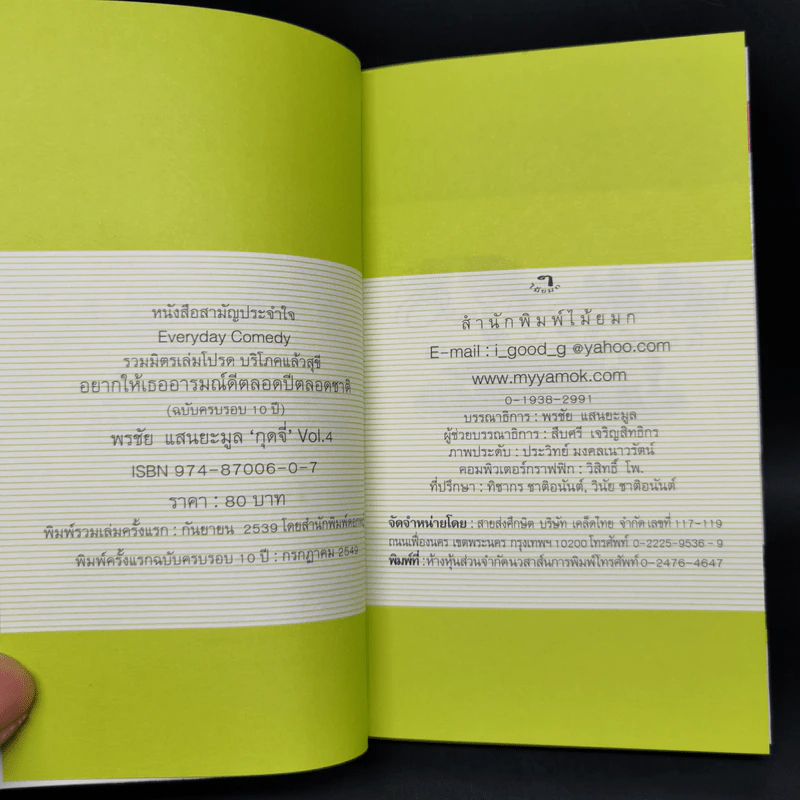 หนังสือสามัญประจำใจ
Everyday Comedy
รวมมิตรเล่มโปรด บริโภคแล้วสุขี
อยากให้เธออารมณ์ดีตลอดปีตลอดชาติ
(ฉบับครบรอบ 10 ปี)
พรชัย แสนยะมูล ‘กุดจี่’ Vol.4
ISBN 974-87006-0-7
ราคา : 80 บาท
พิมพ์รวมเล่มครั้งแรก : กันยายน 2539 โดยสำนักพิมพ์
พิมพ์ครั้งแรกฉบับครบรอบ 10 ปี : กรกฎาคม 2549
ไม้ยมก
สำนักพิมพ์ไม้ยมก
E-mail : i_good_g @yahoo.com
www.myyamok.com
0-1938-2991
บรรณาธิการ : พรชัย แสนยะมูล
ผู้ช่วยบรรณาธิการ : สืบศรี เจริญสิทธิกร
ภาพประดับ : ประวิทย์ มงคลเนาวรัตน์
คอมพิวเตอร์กราฟฟิก : วิสิทธิ์ โพ.
ที่ปรึกษา : ทิชากร ชาติอนันต์, วินัย ชาติอนันต์
จัดจำหน่ายโดย : สายส่งศึกษิต บริษัท เคล็ดไทย จำกัด เลขที่ 117-119
ถนนเฟื่องนคร เขตพระนคร กรุงเทพฯ 10200 โทรศัพท์ 0-2225-9536-9
พิมพ์ที่ : ห้างหุ้นส่วนจำกัดนวสาส์นการพิมพ์โทรศัพท์ 0-2476-4647